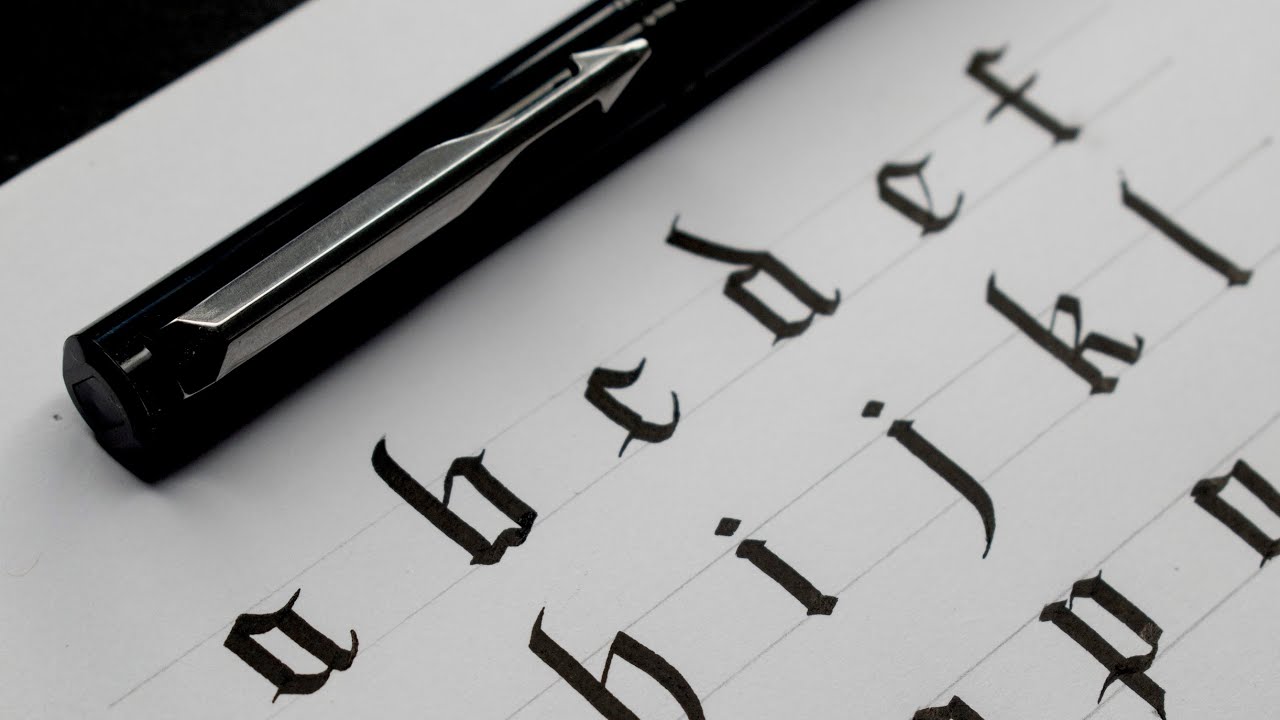 a b c d e f
h i j k l
p